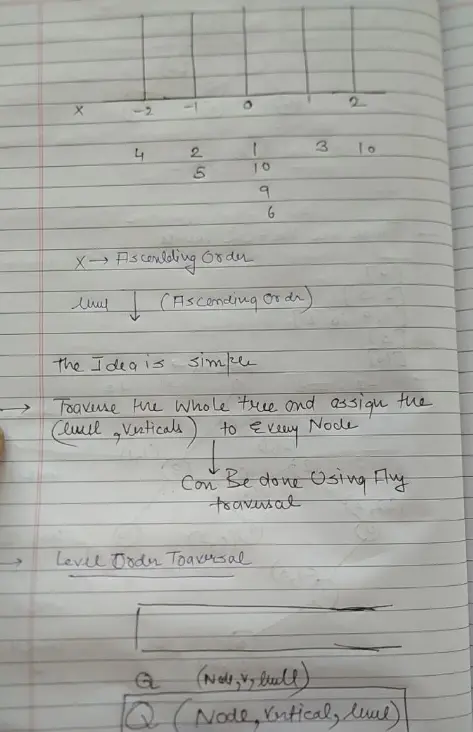 X -2 -1 0 1 2
4 2 1 3 10
5 10
9
6
X → Ascending Order
level ↓ (Ascending Ordr)
the Idea is simple
→ Traverse the whole tree and assign the
(level, verticals) to Every Node
↓
Can Be done Using Any
traversal
→ Level Order Traversal
Q (Node, v, level)
Q (Node, vertical, level)